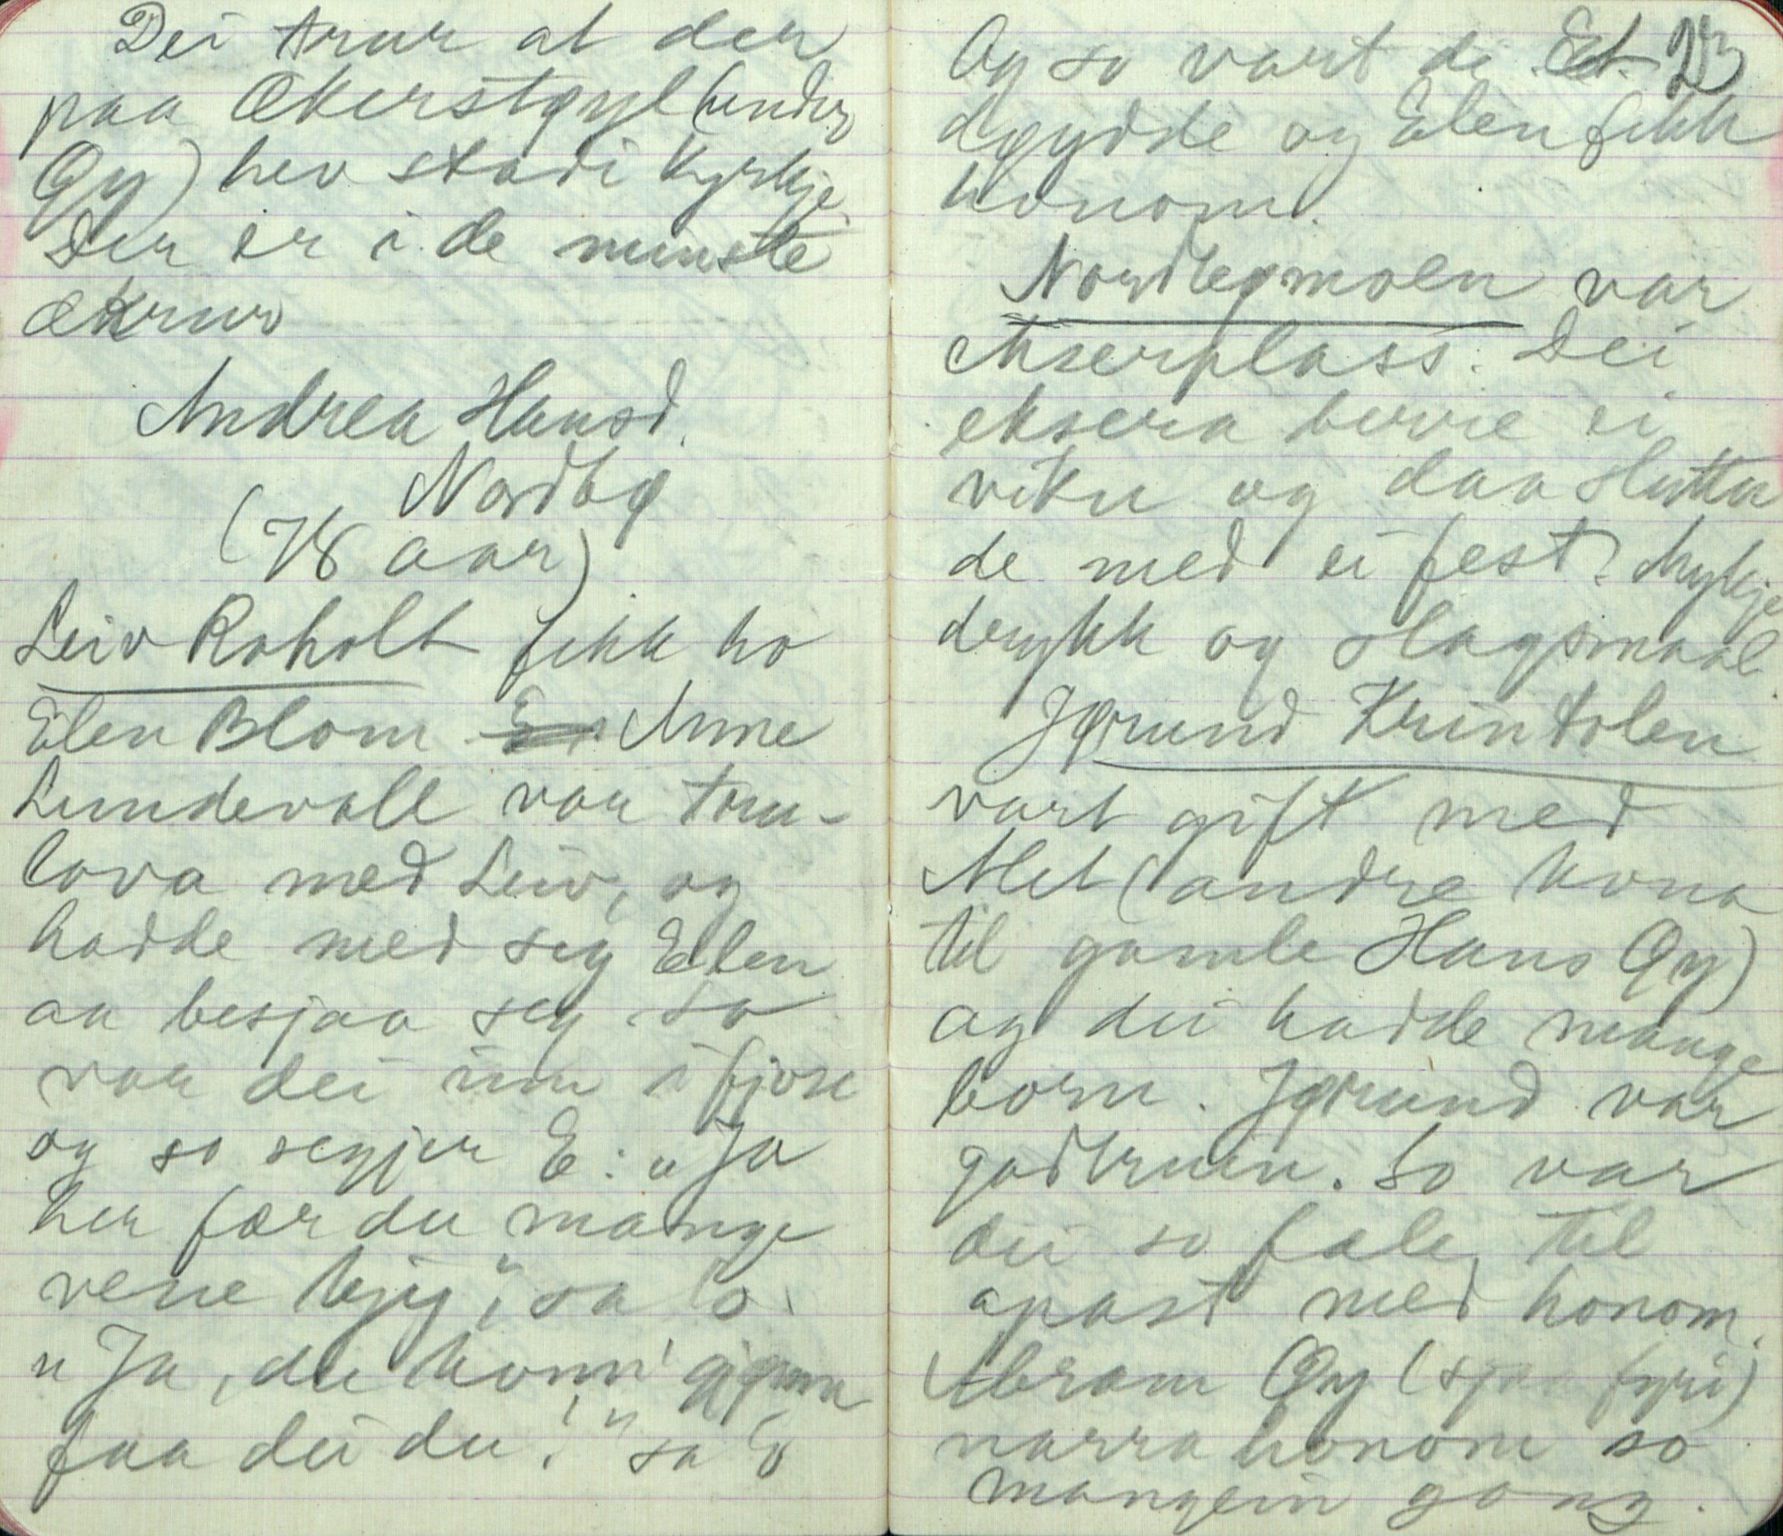 Dei trur at der
paa Økerstøyl (under
Øy) hev stadi kyrkje
Der er i de minste
økrur
Andrea Hansd.
Nordbø
(78 aar)
Leiv Roholt fekk ho
Elen Blom Anne
Lundevall var tru-
lova med Leiv, og
hadde med seg Elen
aa besjaa seg. So
var dei inn i fjøse
og so segjer E: "Ja
her fær du mange
vene kjyr", sa o.
"Ja, du konn' gjønn
faa dei du!" sa o
Og so vart de. 23
døydde og Elen fekk
honom.
Nordbømoen var
ekserplass. Dei
eksera berre ei
viku og daa slutta
de med ei fest. Mykje
drykk og slagsmaal.
Jørund Krintolen
vart gift med
Alet (andre kona
til gamle Hans Øy)
og dei hadde mange
born. Jørund var
godtruen. So var
dei so fæle til
apast med honom.
Abram Øy (sjaa fyri)
narra honom so
mangein gong.